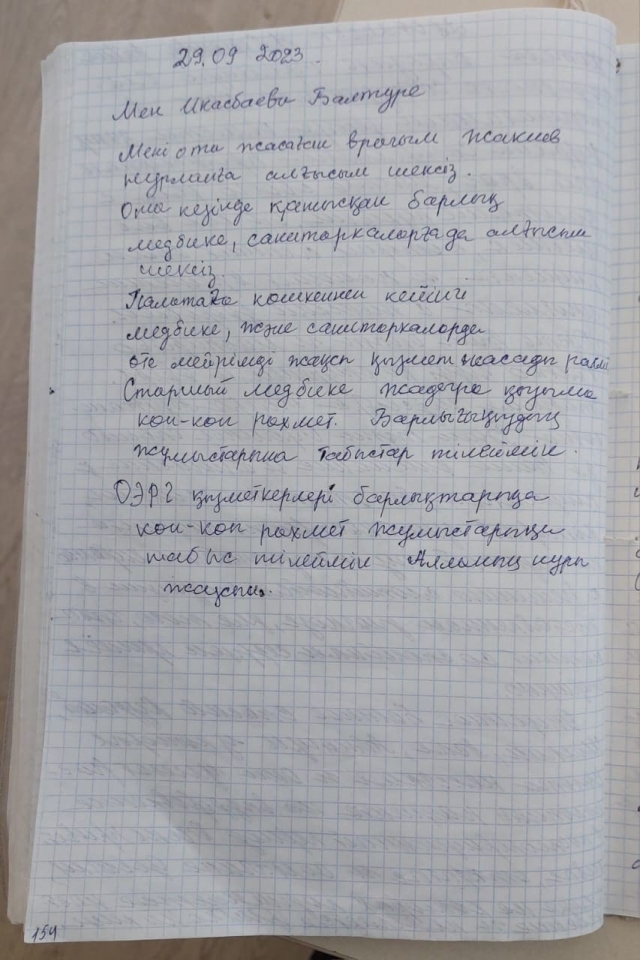 29.09 2023.
Мен Икасбаева Балтуре
Мені ота жасаған врагым Жакиев
Нурманға алғысым шексіз.
Ота кезінде қатысқан барлық
медбике, санитаркаларға да алғысым
шексіз.
Палатаға көшкеннен кейінгі
медбике, және санитаркаларда
өте мейрімді жақсы қызмет жасады рахмет
Старший медбике Жадыра қызыма
көп-көп рахмет. Барлығыңыздың
жұмыстарыңа табыстар тілеймін.
ОЭРГ қызметкерлері барлықтарыңа
көп-көп рахмет жұмыстарыңа
табыс тілеймін Алланың нұры
жаусын.
154